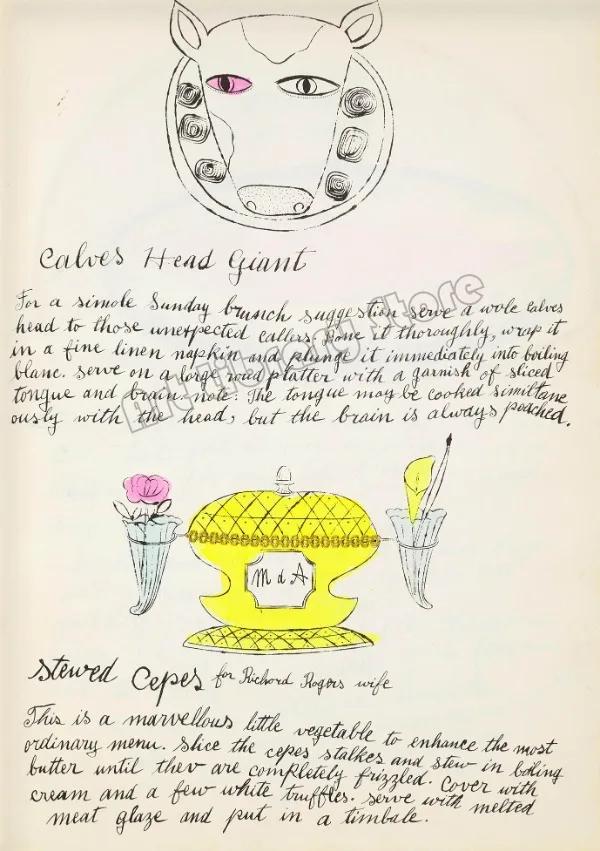 Calves Head Giant
For a simole Sunday brunch suggestion serve a wole calves
head to those unexpected callers. Bone it thoroughly, wrap it
in a fine linen napkin and plunge it immediately into boiling
blanc. serve on a large roud platter with a garnish of sliced
tongue and brain. note: The tongue may be cooked similtane
ously with the head, but the brain is always poached.
M d A
Stewed Cepes for Richard Rogers wife
This is a marvellous little vegetable to enhance the most
ordinary menu. Slice the cepes stalkes and stew in boiling
butter until thev are completely frizzled. Cover with
cream and a few white truffles. serve with melted
meat glaze and put in a timbale.
Art Library Store